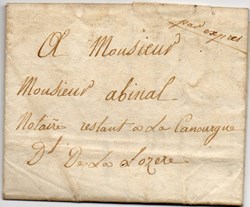 par exprès
A Monsieur
Monsieur abinal
Notaire restant a La Canourgue
Dt De La Lozere